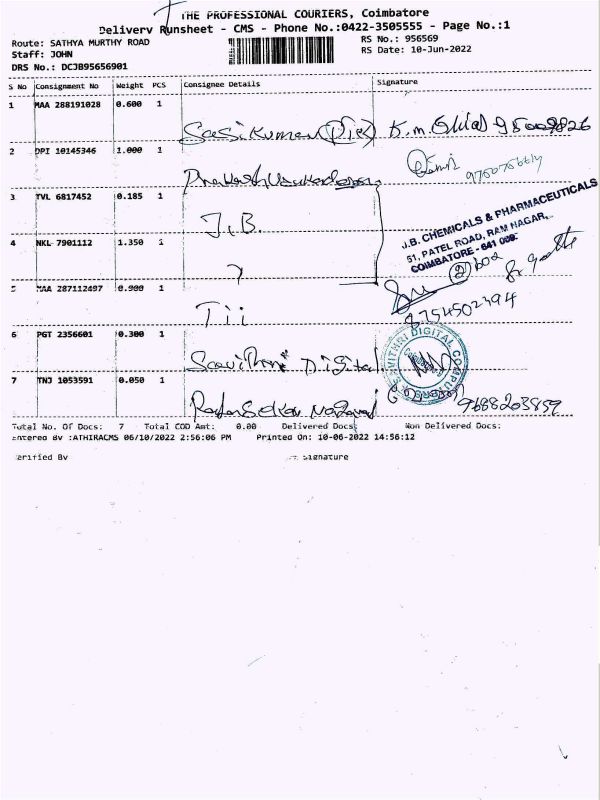 THE PROFESSIONAL COURIERS, Coimbatore
Delivery Runsheet - CMS - Phone No.:0422-3505555 - Page No.:1
Route: SATHYA MURTHY ROAD RS No.: 956569
Staff: JOHN RS Date: 10-Jun-2022
DRS No.: DCJB95656901
S No Consignment No Weight PCS Consignee Details Signature
1 MAA 288191028 0.600 1
Sasikumar
2 DPI 10145346 1.000 1
3 TVL 6817452 0.185 1
J.B
J.B. CHEMICALS & PHARMACEUTICALS
51, PATEL ROAD, RAM NAGAR,
COIMBATORE - 641 009.
4 NKL 7901112 1.350 1
5 MAA 287112497 0.900 1
8754502394
6 PGT 2356601 0.300 1
Savithri Digital
SAVITHRI DIGITAL COMPUTERS
7 TNJ 1053591 0.050 1
9688203859
Total No. Of Docs: 7 Total COD Amt: 0.00 Delivered Docs: Non Delivered Docs:
Entered By :ATHIRACMS 06/10/2022 2:56:06 PM Printed On: 10-06-2022 14:56:12
Verified By Signature